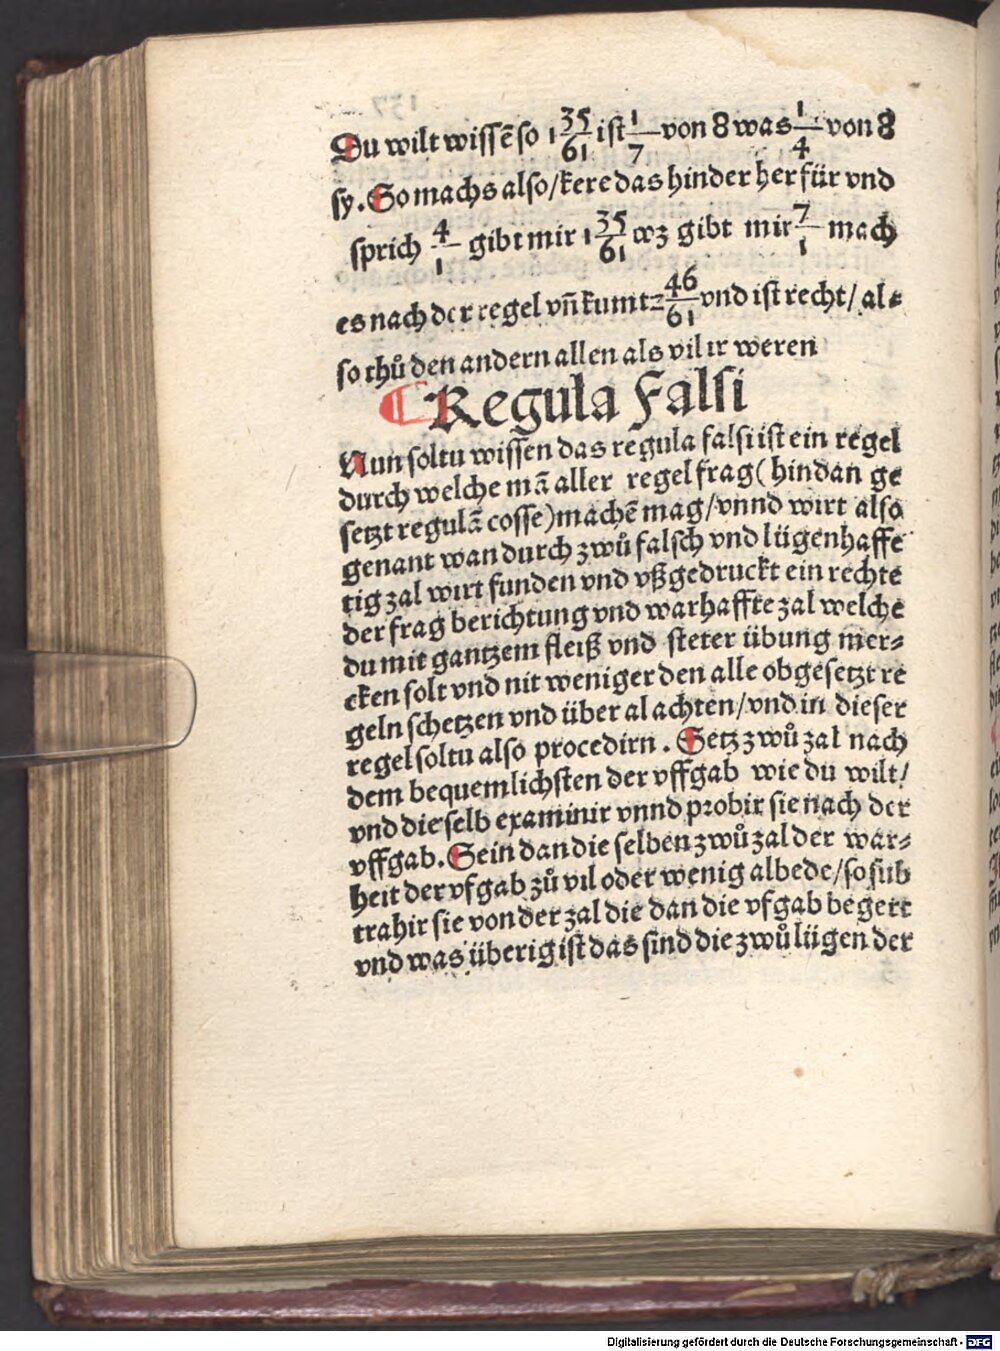 Du wilt wissẽ so 1 35/61 ist 1/7 von 8 was 1/4 von 8
sy. So machs also/ kere das hinder herfür vnd
sprich 4/1 gibt mir 1 35/61 wz gibt mir 7/1 mach
es nach der regel vñ kumt 2 46/61 vnd ist recht/ al⸗
so thů den andern allen als vil ir weren
Regula Falsi
Nun soltu wissen das regula falsi ist ein regel
durch welche mã aller regel frag (hindan ge
setzt regulã cosse) machẽ mag/ vnnd wirt also
genant wan durch zwů falsch vnd lügenhaffe
tig zal wirt funden vnd vßgedruckt ein rechte
der frag berichtung vnd warhaffte zal welche
du mit gantzem fleiß vnd steter übung mer⸗
cken solt vnd nit weniger den alle obgesetzt re
geln schetzen vnd über al achten/ vnd in dieser
regel soltu also procedirn. Setz zwů zal nach
dem bequemlichsten der vffgab wie du wilt/
vnd die selb examinir vnnd probir sie nach der
vffgab. Sein dan die selben zwů zal der war⸗
heit der vfgab zů vil oder wenig albede/ so sub
trahir sie von der zal die dan die vfgab begert
vnd was überig ist das sind die zwů lügen der
Digitalisierung gefördert durch die Deutsche Forschungsgemeinschaft - DFG